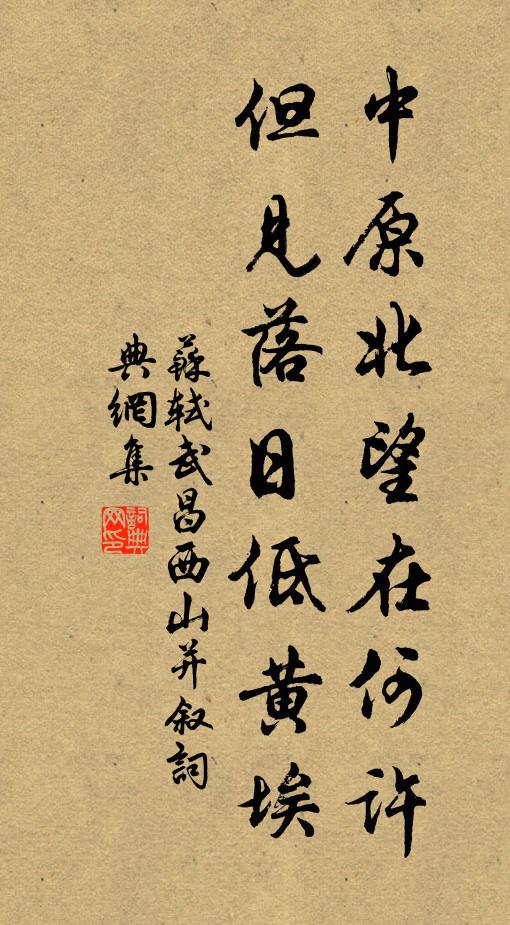 中原北望在何许
但見落日低黄埃
蘇軾武昌西山并叙詞
典網集
詞典网印